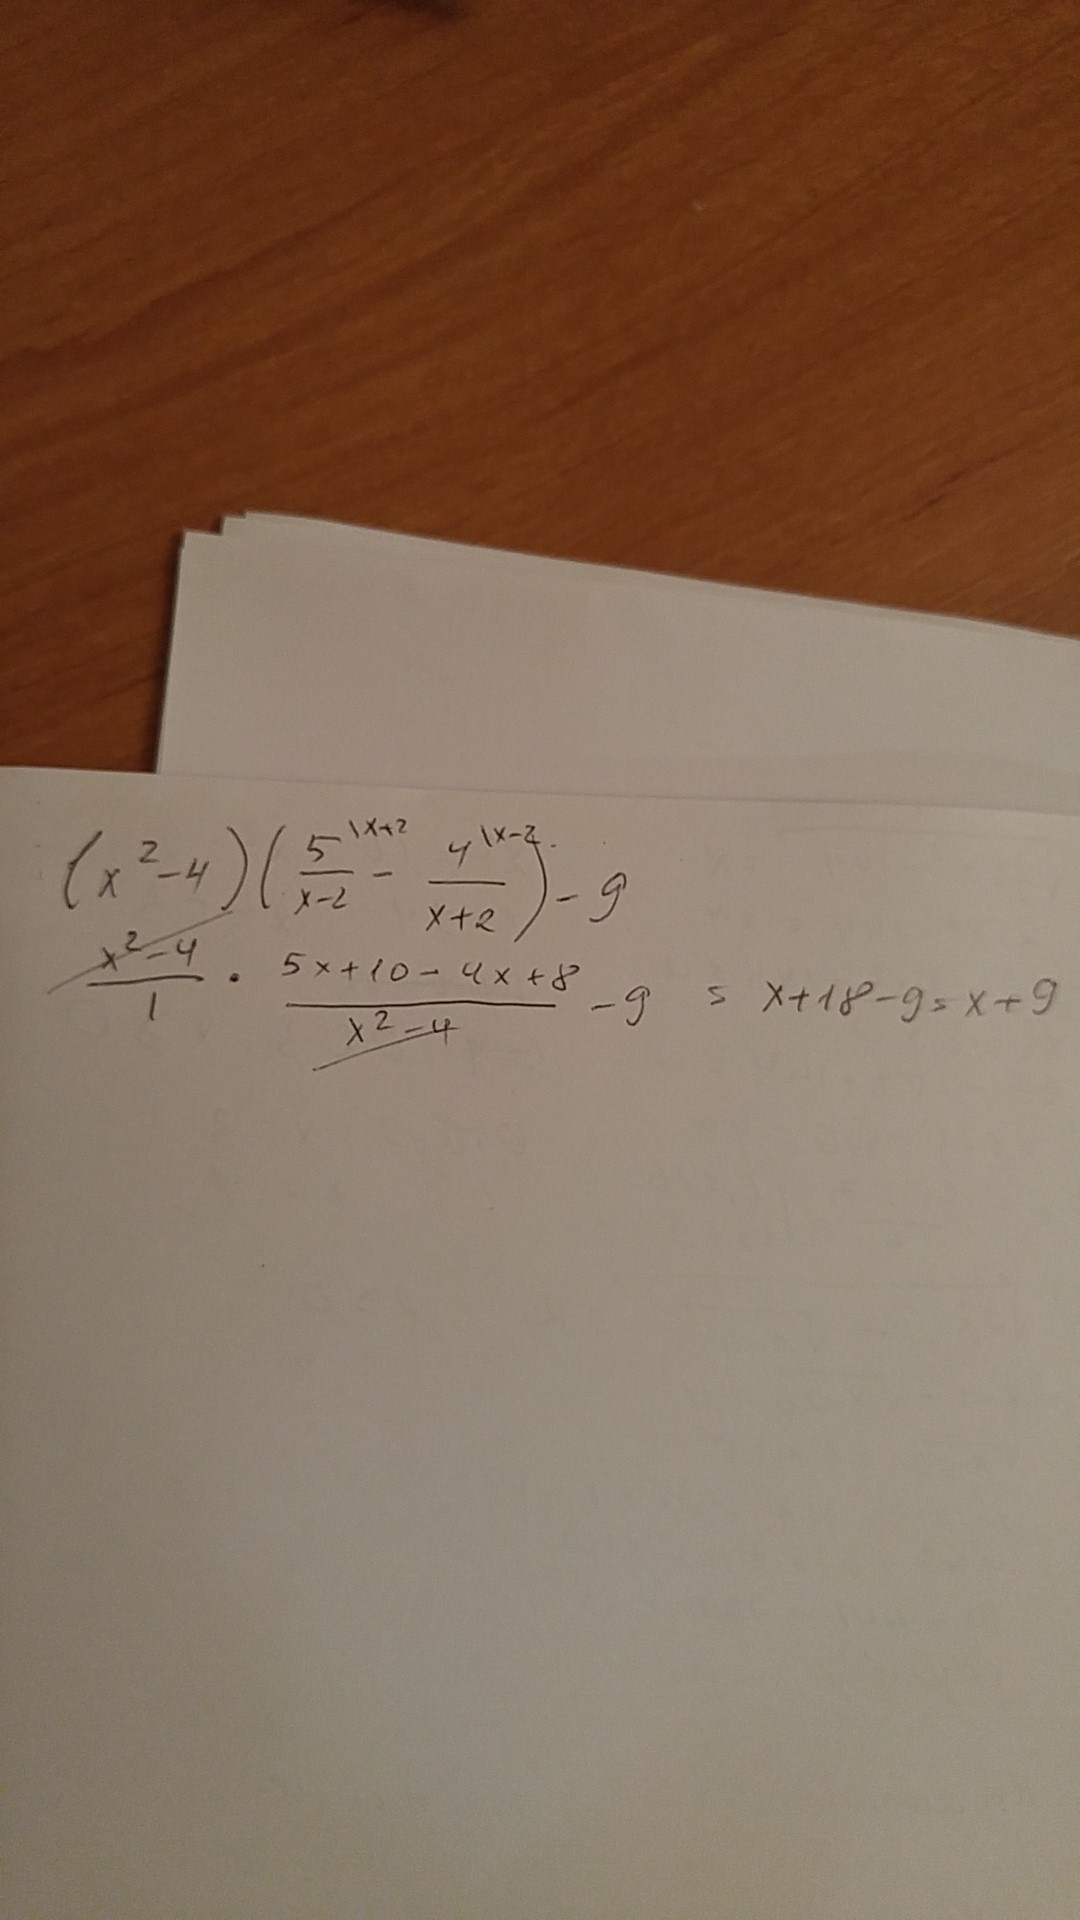 (x²-4)(5\x+2/x-2 - 4\x-2/x+2) - 9
x²-4/1 · 5x+10-4x+8/x²-4 - 9 = x+18-9=x+9